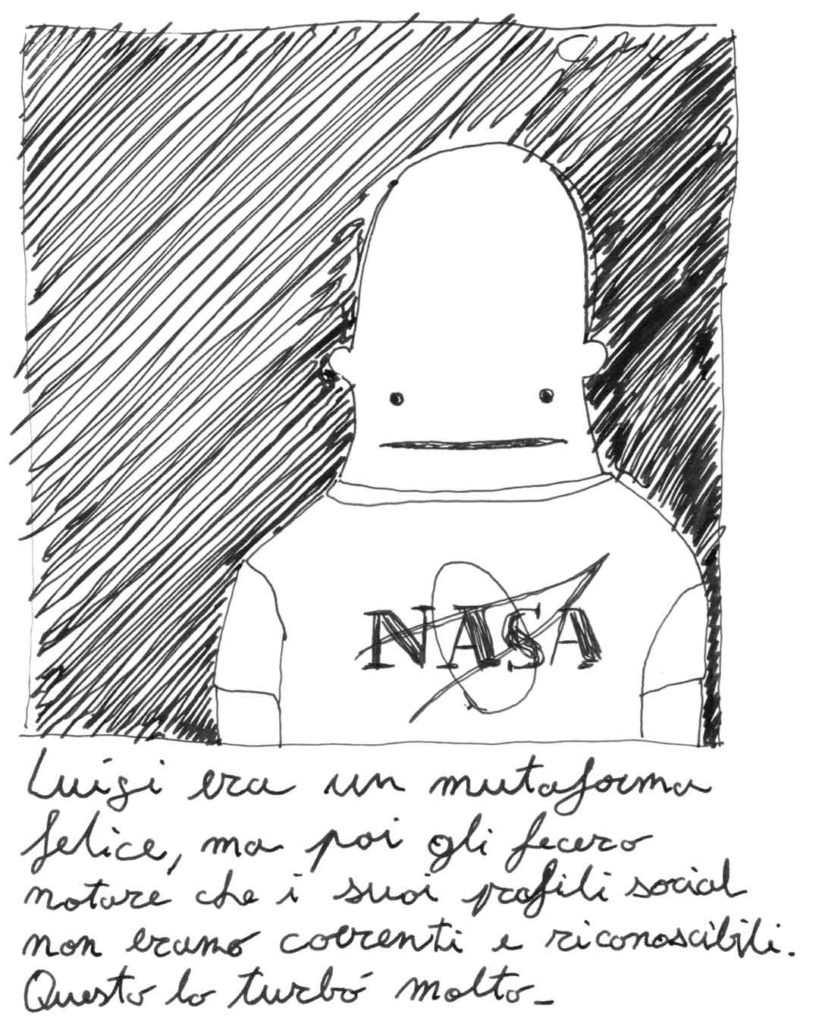 NASA
Luigi era un mutaforma
felice, ma poi gli fecero
notare che i suoi profili social
non erano coerenti e riconoscibili.
Questo lo turbó molto_